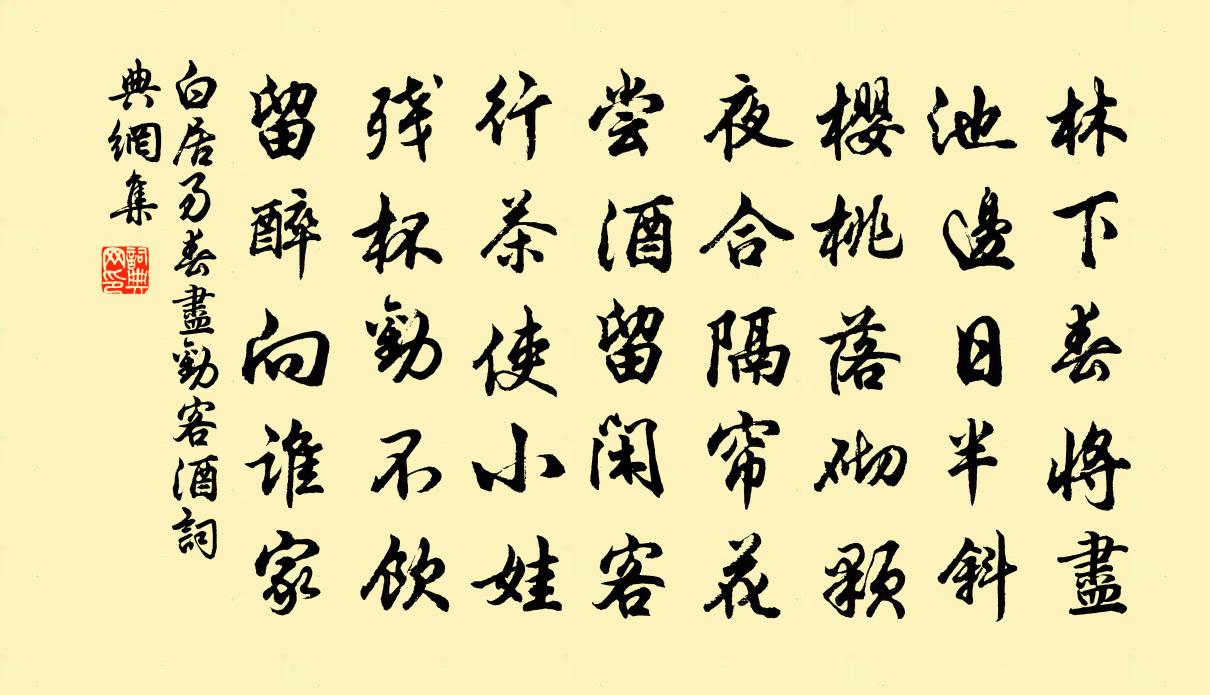 林下春將盡
池邊日半斜
櫻桃落砌顆
夜合隔帘花
尝酒留閑客
行茶使小娃
残杯勸不飲
留醉向誰家
白居易春盡勸客酒詞
典網集
詞典
网印